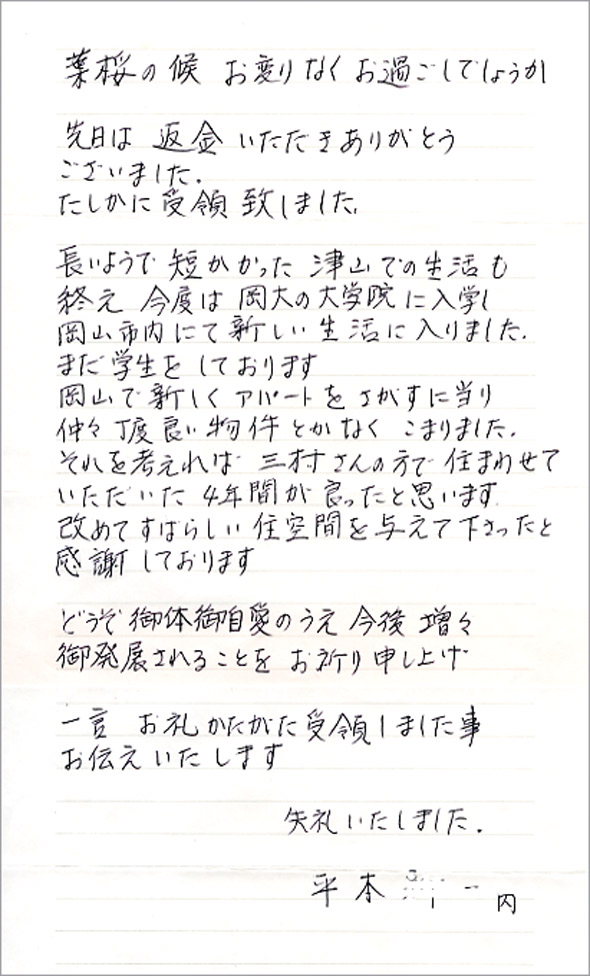 葉桜の候 お変りなくお過ごしでしょうか
先日は 返金 いただきありがとう
ございました.
たしかに受領致しました.
長いようで短かかった 津山での生活も
終え 今度は岡大の大学院に入学し
岡山市内にて新しい生活に入りました.
まだ学生をしております
岡山で新しくアパートをさがすに当り
仲々丁度良い物件とかなくこまりました.
それを考えれば 三村さんの方で住まわせて
いただいた 4年間が良ったと思います.
改めてすばらしい住空間を与えて下さったと
感謝しております
どうぞ御体御自愛のうえ今後増々
御発展されることをお祈り申し上げ
一言 お礼かたがた受領しました事
お伝えいたします
失礼いたしました.
平本 一 内